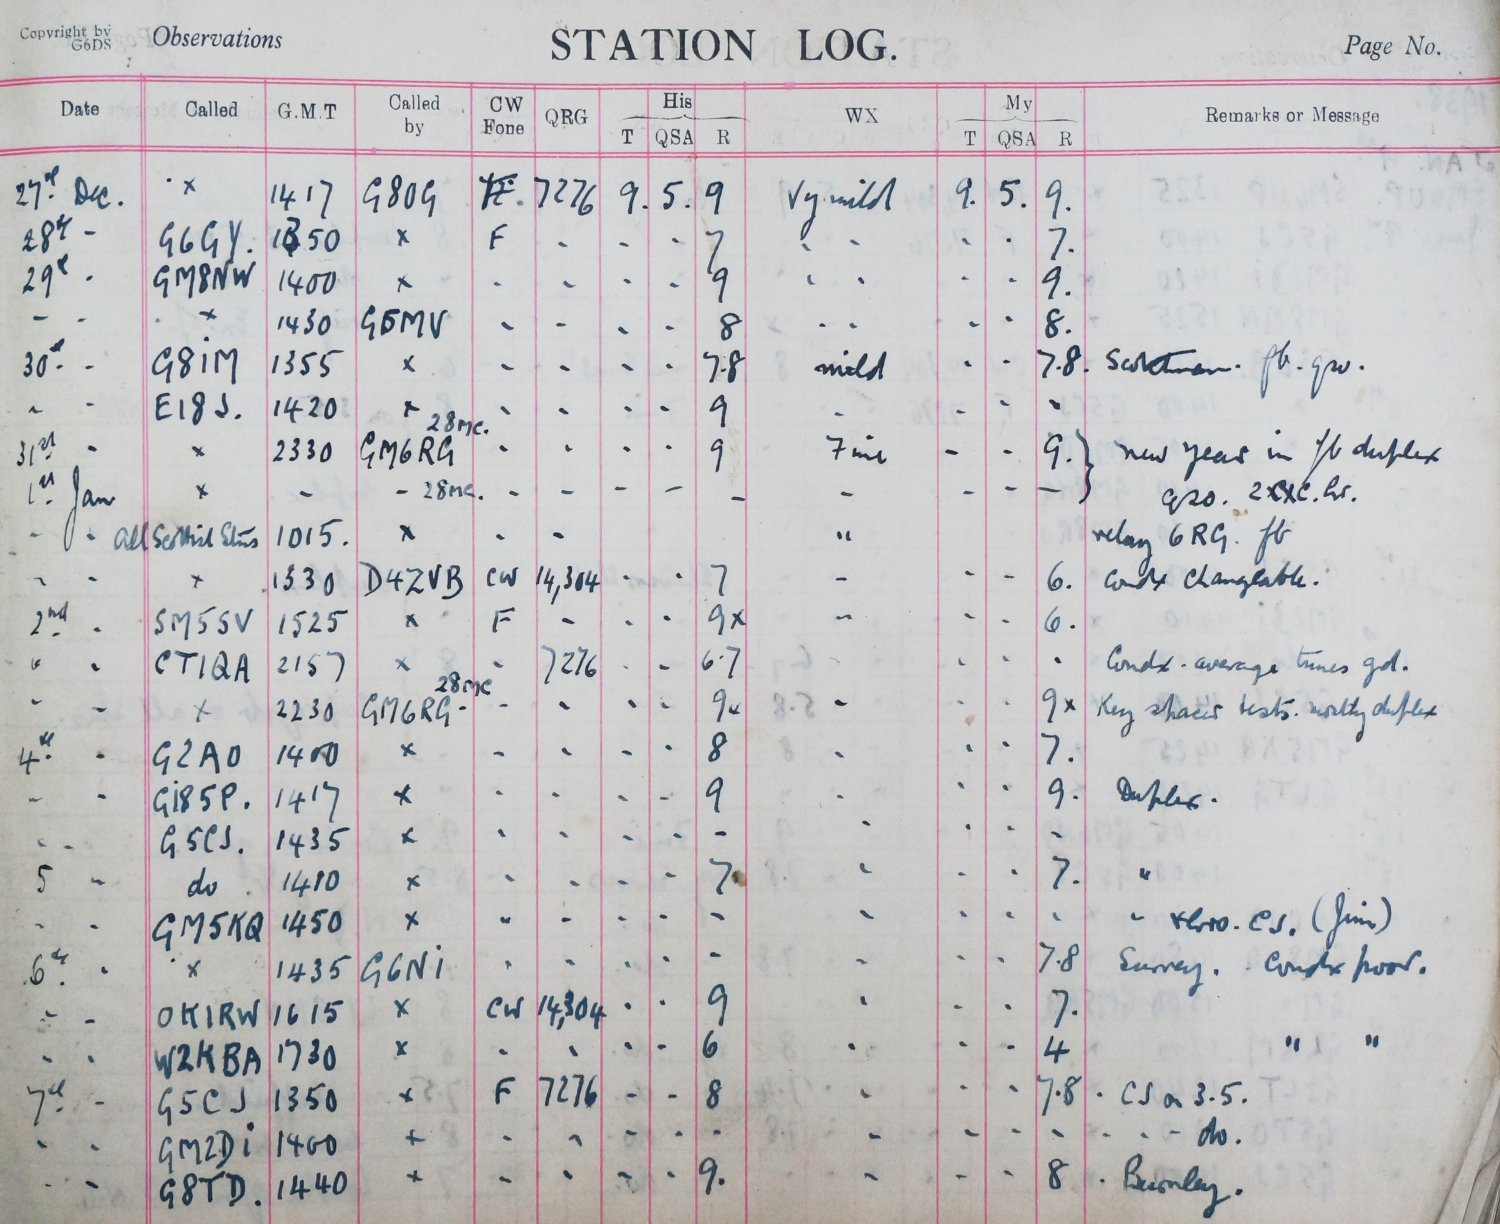 Copyright by G6DS Observations STATION LOG. Page No.
Date Called G.M.T Called by CW Fone QRG His T QSA R WX My T QSA R Remarks or Message
27th Dec. x 1417 G8OG F. 7276 9. 5. 9 Vy mild 9. 5. 9.
28th - G6GY. 1350 x F - - - 7 - - - - 7.
29th - GM8NW 1400 x - - - - 9 - - - - 9.
- - x 1430 G5MV - - - - 8 - - - - 8.
30th - G8iM 1355 x - - - - 7.8 mild - - 7.8. Scotsman. fb. qso.
- - EI8J. 1420 x - - - - 9 - - - -
31st - x 2330 GM6RG 28mc. - - - - 9 Fine - - 9. } New Year in fb duplex
1st Jan x - - 28mc. - - - - - - - - - qso. 2 hr.
- - all Scottish Stns 1015. x - - " relay 6RG. fb
- - x 1330 D4ZVB CW 14,304 - - 7 - - - 6. Condx changeable.
2nd - SM5SV 1525 x F - - - 9x - - - 6.
" - CT1QA 2157 x - 7276 - - 6.7 - - - Condx. average times gd.
- - x 2230 GM6RG - 28mc - - - - 9x - - - 9x Key tests. duplex
4th - G2AO 1400 x - - - - 8 - - - 7.
- - Gi85P. 1417 x - - - - 9 - - - 9. Duplex.
- - G5CJ. 1435 x - - - - - - - - -
5 - do. 1410 x - - - - 7 - - - 7. "
- - GM5KQ 1450 x - - - - - - - - - - CJ. (Jim)
6th - x 1435 G6Ni - - - - - - - - 7.8 Surrey. Condx poor.
- - OK1RW 1615 x CW 14,304 - - 9 - - - 7.
- - W2KBA 1730 x - - - - 6 - - - 4 " "
7th - G5CJ 1350 x F 7276 - - 8 - - - 7.8 - CJ on 3.5.
- - GM2Di 1400 x - - - - - - - - - - - - do.
- - G8TD. 1440 x - - - - 9. - - - 8 - Burnley.